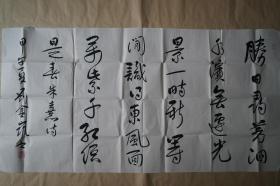 勝日尋芳泗
水濱無邊光
景一時新等
閒識得東風面
萬紫千紅總
是春朱熹詩
甲午夏